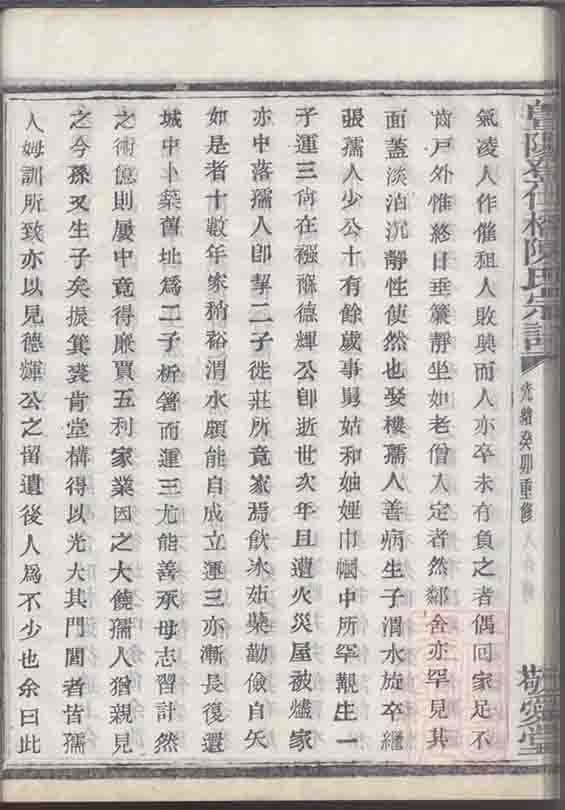 氣凌人作催租人敗興而人亦卒未有負之者偶回家足不
窗戶外惟終日垂簾靜坐如老僧入定者然鄰舍亦罕見其
面蓋淡泊沉靜性使然也娶樓孺人善病生子渭水旋卒繼
張孺人少公十有餘歲事舅姑和妯娌巾幗中所罕覯生一
子運三尚在襁褓德輝公卽逝世次年且遭火災屋被爐家
亦中落孺人卽挈二子徙莊所竟家焉飲冰茹蘗勤儉自矢
如是者十數年家稍裕渭水頗能自成立運三亦漸長復還
城中卜築舊址爲二子析箸而運三尤能善承母志習計然
之術億則屢中竟得廉賈五利家業因之大饒孺人猶親見
之今孫又生子矣振箕裘肯堂構得以光大其門閭者皆孺
人姆訓所致亦以見德輝公之留遺後人爲不少也余曰此
陳氏宗譜
光緒癸卯重修
敬愛堂